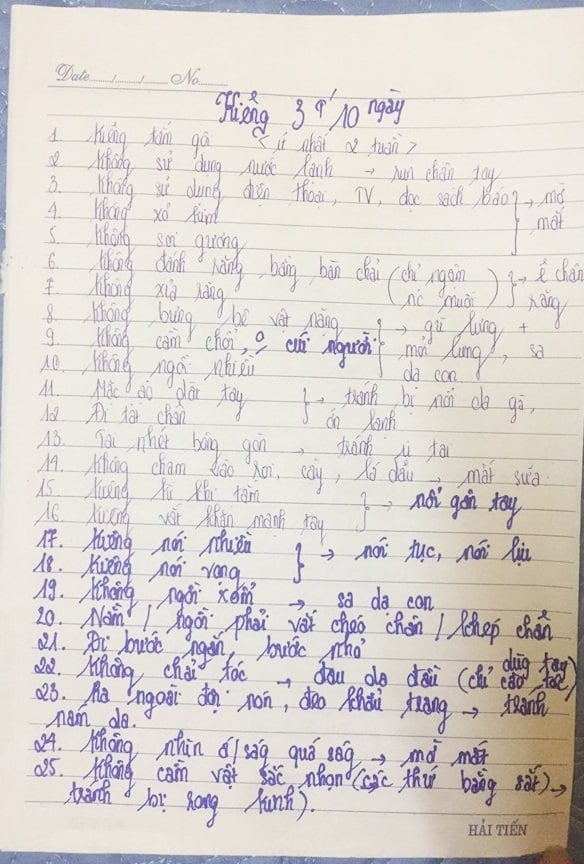 Date...../...../..... No.........
Kiêng 3 T' 10 ngày
1 Kiêng tắm gội <ít nhất 2 tuần>
2 Không sử dụng nước lạnh → run chân tay
3. Không sử dụng điện thoại, TV, đọc sách báo } → mờ mắt
4. Không xỏ kim
5. Không soi gương
6 Không đánh răng bằng bàn chải (chỉ ngậm nc muối) } → ê chân răng
7. Không xỉa răng
8 Không bưng bê vật nặng } → gù lưng + mỏi lưng, sa dạ con
9. Không cầm chổi, o cúi người
10. Không ngồi nhiều
11. Mặc áo dài tay } → tránh bị nổi da gà, ớn lạnh
12 Đi tất chân
13. Tai nhét bông gòn → tránh ù tai
14. Không chạm vào xơi, cày, lá dâu → mất sữa.
15. Kiêng kì khi tắm } → nổi gân tay
16 Kiêng vắt khăn mạnh tay
17. Kiêng nói nhiều } → nói tục, nói lịu
18. Kiêng nói vang
19. Không ngồi xổm → sa dạ con
20. Nằm / ngồi phải vắt chéo chân / khép chân
21. Đi bước ngắn, bước nhỏ
22. Không chải tóc → đau da đầu (chỉ dùg tay cào tóc)
23. Ra ngoài đội nón, đeo khẩu trang → tránh
nám da.
24. Không nhìn á/ság quá ság → mờ mắt
25. Không cầm vật sắc nhọn (các thứ bằng sắt) →
tránh bị song kinh).
HẢI TIẾN